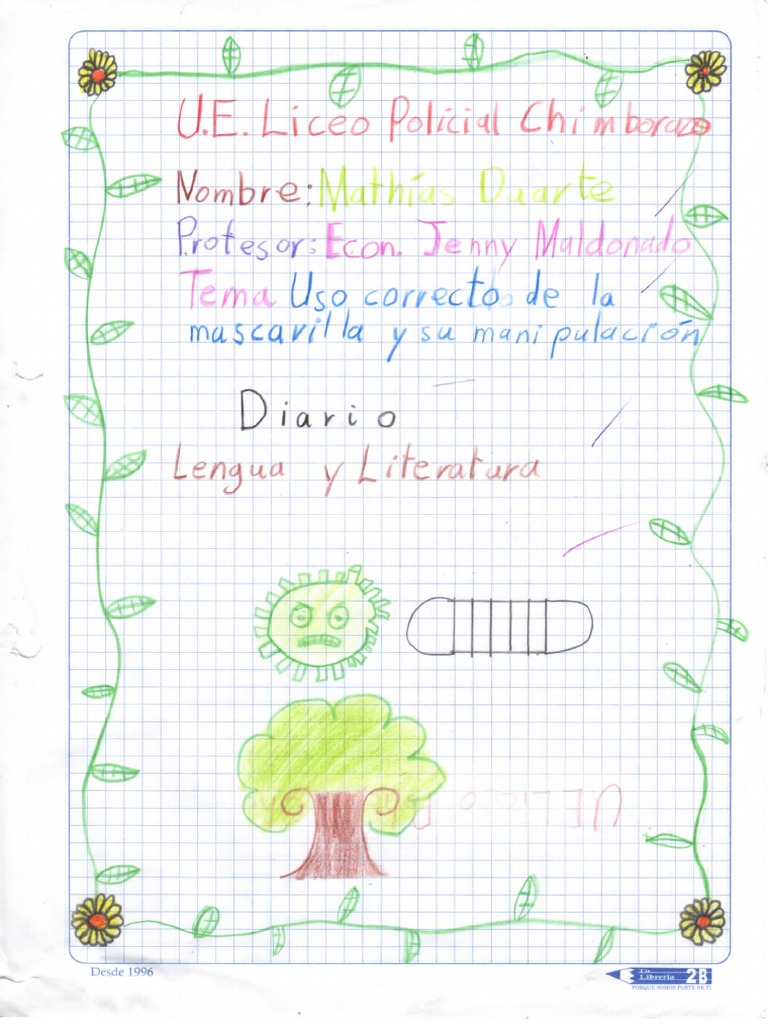 U.E. Liceo Policial Chimborazo
Nombre: Mathías Duarte
Profesor: Econ. Jenny Maldonado
Tema Uso correcto de la
mascarilla y su manipulación
Diario
Lengua y Literatura
Desde 1996
Tu Librería 2B
PORQUE SOMOS PARTE DE TI